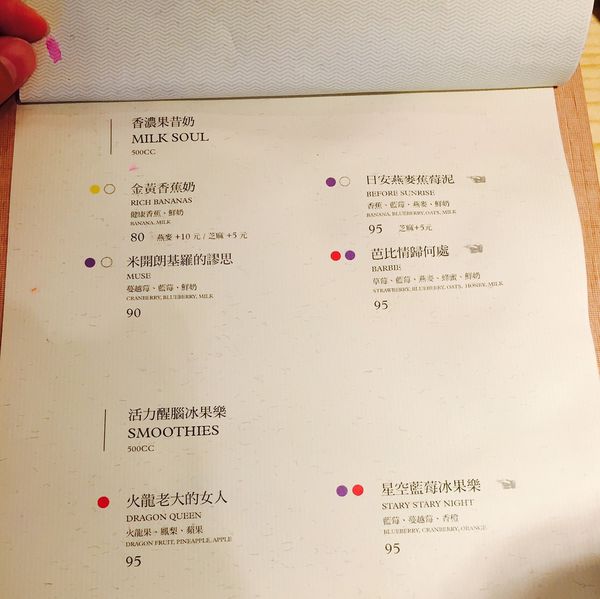 香濃果昔奶
MILK SOUL
500CC
金黃香蕉奶
RICH BANANAS
健康香蕉、鮮奶
BANANA, MILK
80 燕麥 +10 元 / 芝麻 +5 元
日安燕麥蕉莓泥
BEFORE SUNRISE
香蕉、藍莓、燕麥、鮮奶
BANANA, BLUEBERRY, OATS, MILK
95 芝麻+5元
米開朗基羅的謬思
MUSE
蔓越莓、藍莓、鮮奶
CRANBERRY, BLUEBERRY, MILK
90
芭比情歸何處
BARBIE
草莓、藍莓、燕麥、蜂蜜、鮮奶
STRAWBERRY, BLUEBERRY, OATS, HONEY, MILK
95
活力醒腦冰果樂
SMOOTHIES
500CC
火龍老大的女人
DRAGON QUEEN
火龍果、鳳梨、蘋果
DRAGON FRUIT, PINEAPPLE, APPLE
95
星空藍莓冰果樂
STARY STARY NIGHT
藍莓、蔓越莓、香橙
BLUEBERRY, CRANBERRY, ORANGE
95